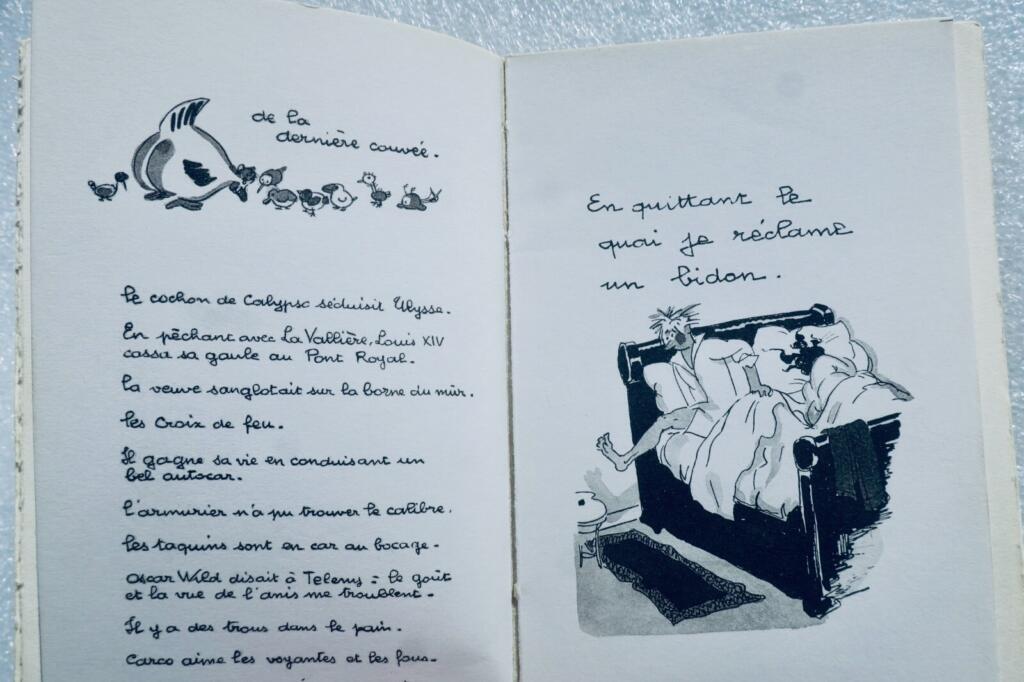 de la
dernière couvée.
le cochon de Calypso séduisit Ulysse.
En pêchant avec La Vallière, Louis XIV
cassa sa gaule au Pont Royal.
la veuve sanglotait sur la borne du mur.
les Croix de feu.
Il gagne sa vie en conduisant un
bel autocar.
l'armurier n'a pu trouver le calibre.
les taquins sont en car au bocage.
Oscar Wild disait à Teleny : le goût
et la vue de l'anis me troublent.
Il y a des trous dans le pain.
Carco aime les voyantes et les fous.
En quittant le
quai je réclame
un bidon.